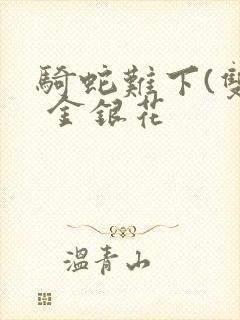 騎蛇難下(雙
金銀花
溫青山